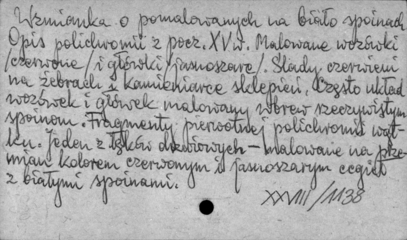 Wzmianka o pomalowanych na biało spoinach
Opis polichromii z pocz. XV w. Malowane wozówki
/czerwone/ i główki /jasnoszare/. Ślady czerwieni
na żebrach. Kamieniarce sklepień. Często układ
wozówek i główek malowany wbrew rzeczywistym
spoinom. Fragmenty pierwotnej polichromii wąt-
ku. Jeden z łęków drzwiowych – malowane na prze-
mian kolorem czerwonym i jasnoszarym cegieł
z białymi spoinami.
XXVIII/1138